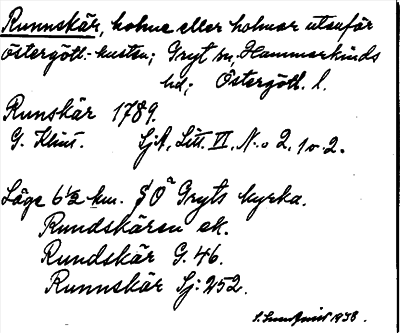 Runnskär, holme eller holmar utanför
Östergötl.-kusten; Gryt sn, Hammarkinds
hd; Östergötl. l.
Runskär 1789.
G. Klint. SjA, Litt. VI, N:o 2, 1 o. 2.
Läge 6 1/2 km. S O Gryts kyrka.
Rundskären ek.
Rundskär G. 46.
Runnskär Sj: 252.
1938.